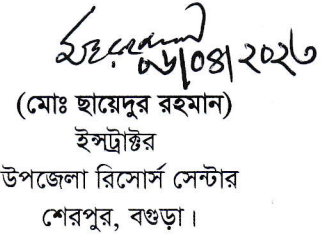 ০৬/০৪/২০২৩
(মোঃ ছায়েদুর রহমান)
ইন্সট্রাক্টর
উপজেলা রিসোর্স সেন্টার
শেরপুর, বগুড়া।